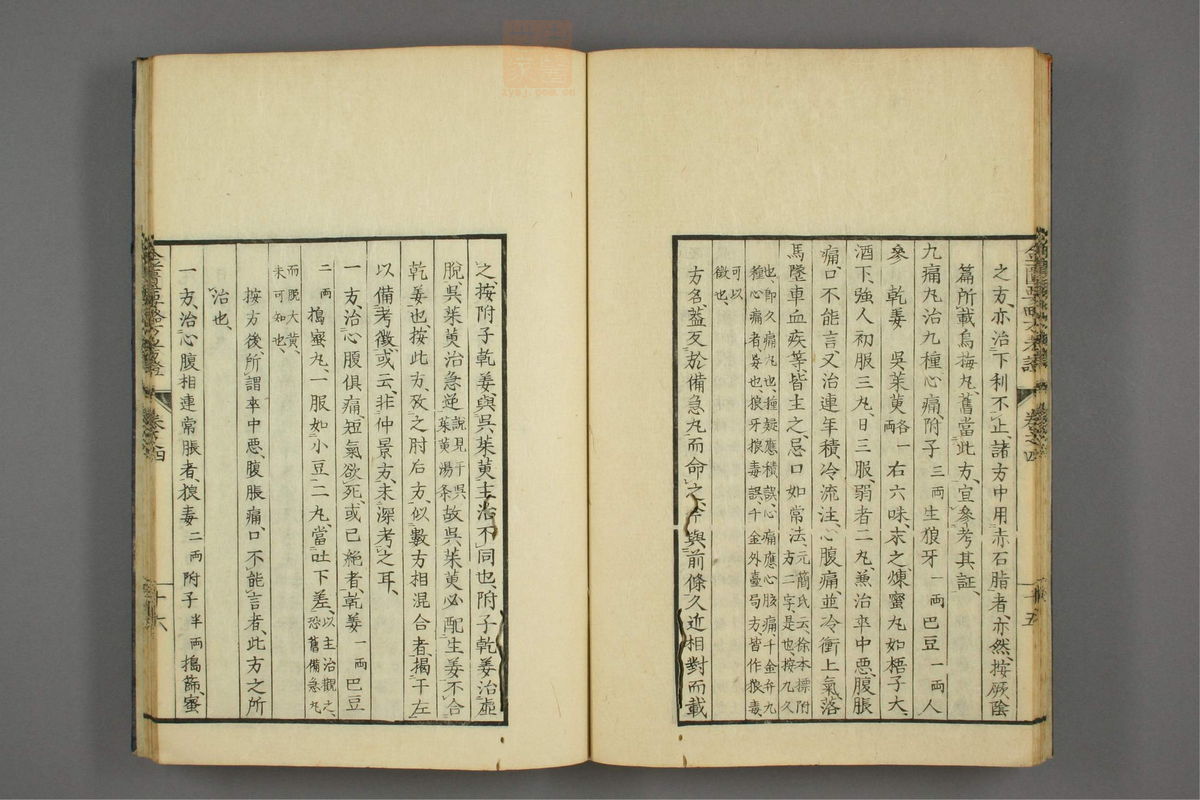 之方、亦治下利不止、諸方中用赤石脂者、亦然、按厥陰
篇所載烏梅丸、舊當此方、宜參考其証、
九痛丸、治九種心痛、附子三両生狼牙一両巴豆一両人
參 乾姜 吳茱萸各一両 右六味、末之煉蜜丸如梧子大、
酒下、強人初服三丸、日三服、弱者二丸、兼治卒中惡、腹脹
痛、口不能言、又治連年積冷流注、心腹痛、並冷衝上氣、落
馬墜車血疾等、皆主之、忌口如常法、元簡氏云、徐本標附
方二字、是也、按九久
也、即久痛丸也、種疑應積誤、心痛應心胘痛、千金弁九
種心痛者、妄也、狼牙狼毒誤、千金外臺局方、皆作狼毒、
可以
徵也、
方名、蓋反於備急丸而命之、與前條久近相對而載
之、按附子乾姜與吳茱萸、主治不同也、附子乾姜治虛
脫、吳茱萸治急逆說見于吳
茱萸湯条故吳茱萸必配生姜不合
乾姜也、按此方、攷之肘后方、似數方相混合者、揭于左
以備考徵、或云、非仲景方、未深考之耳、
一方、治心腹俱痛、短氣欲死、或已絕者、乾姜一両巴豆
二両 搗蜜丸、一服如小豆二丸、當吐下差、以主治觀之、
恐舊備急丸
而脫大黃、
未可知也、
按方後所謂卒中惡、腹脹痛、口不能言者、此方之所
治也、
一方、治心腹相連常脹者、狼毒二両附子半両搗篩、蜜
卷之四
十五
卷之四
十六